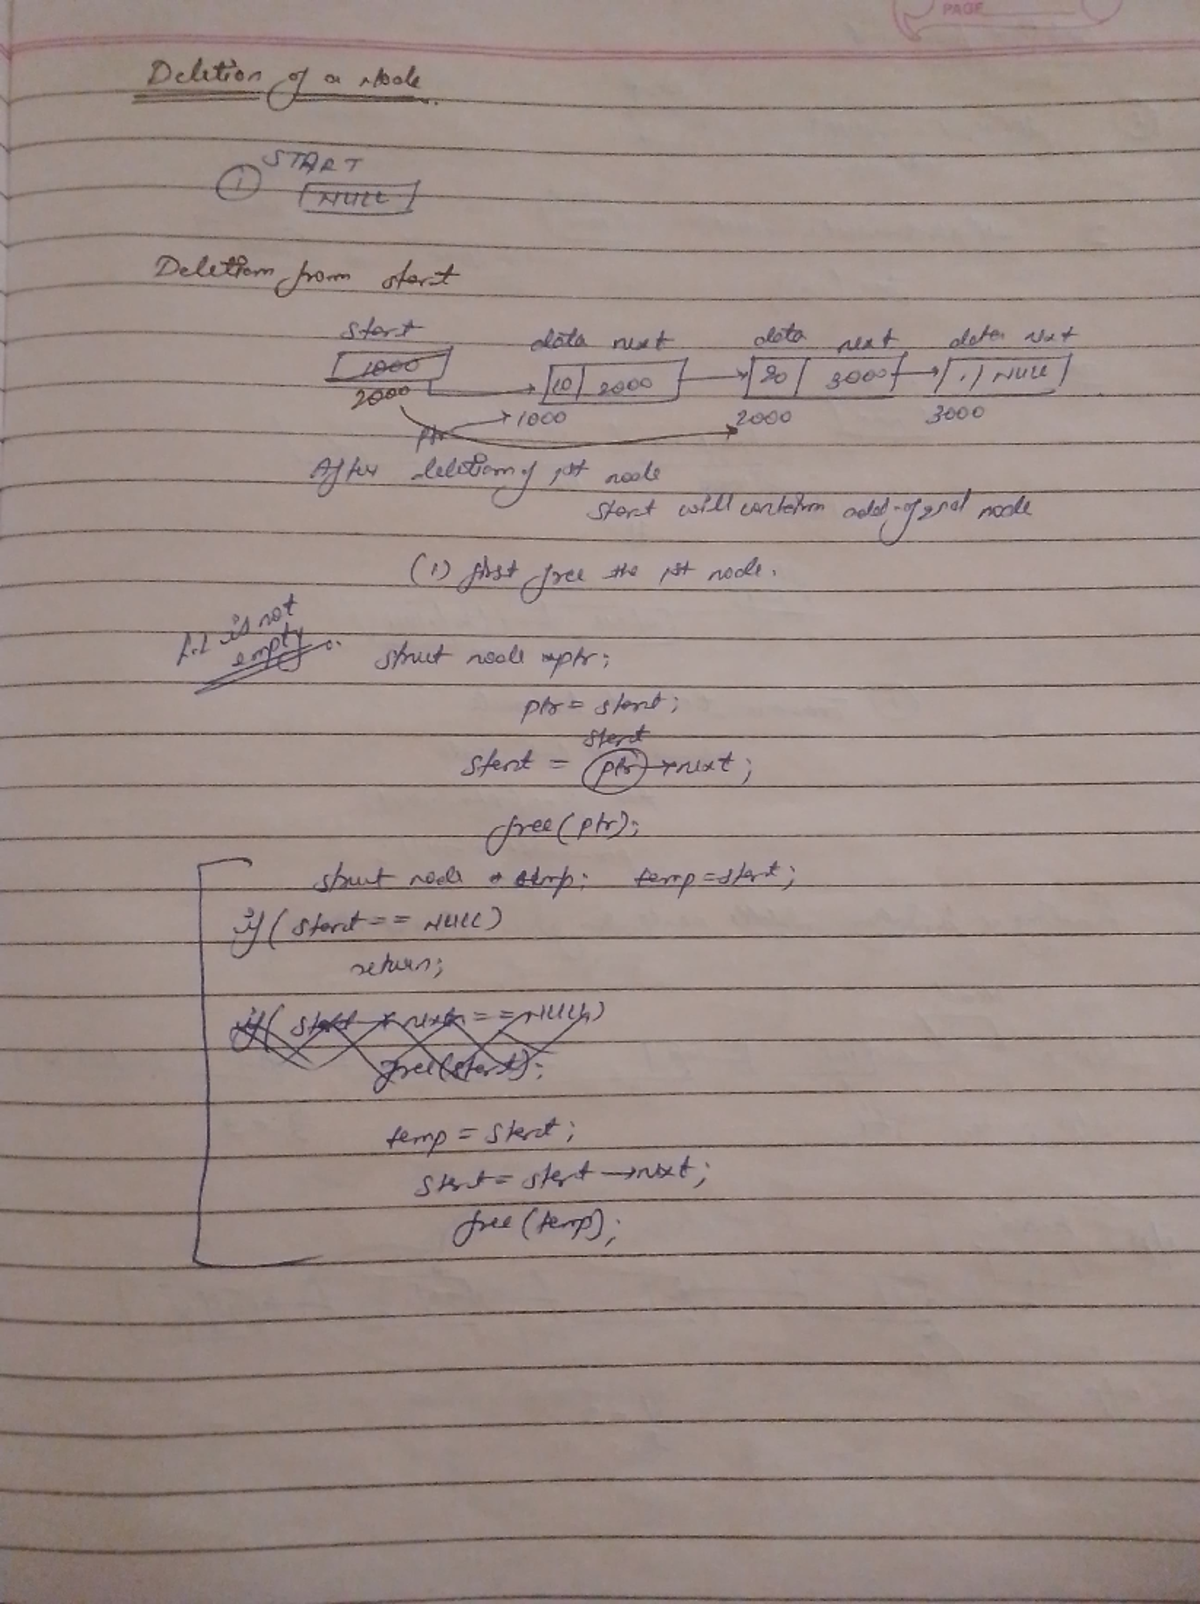 PAGE
Deletion of a Node
START
① NULL
Deletion from start
start data next data next data next
1000 10 2000 20 3000 NULL
2000 1000 2000 3000
ptr
After deletion of 1st node
start will contain add. of 2nd node
(1) first free the 1st node.
L.L is not
empty
struct node *ptr;
ptr = start;
start
start = ptr→next;
free(ptr);
struct node * temp; temp=start;
if(start== NULL)
return;
if(start→next==NULL)
free(start);
temp = start;
start = start→next;
free(temp);